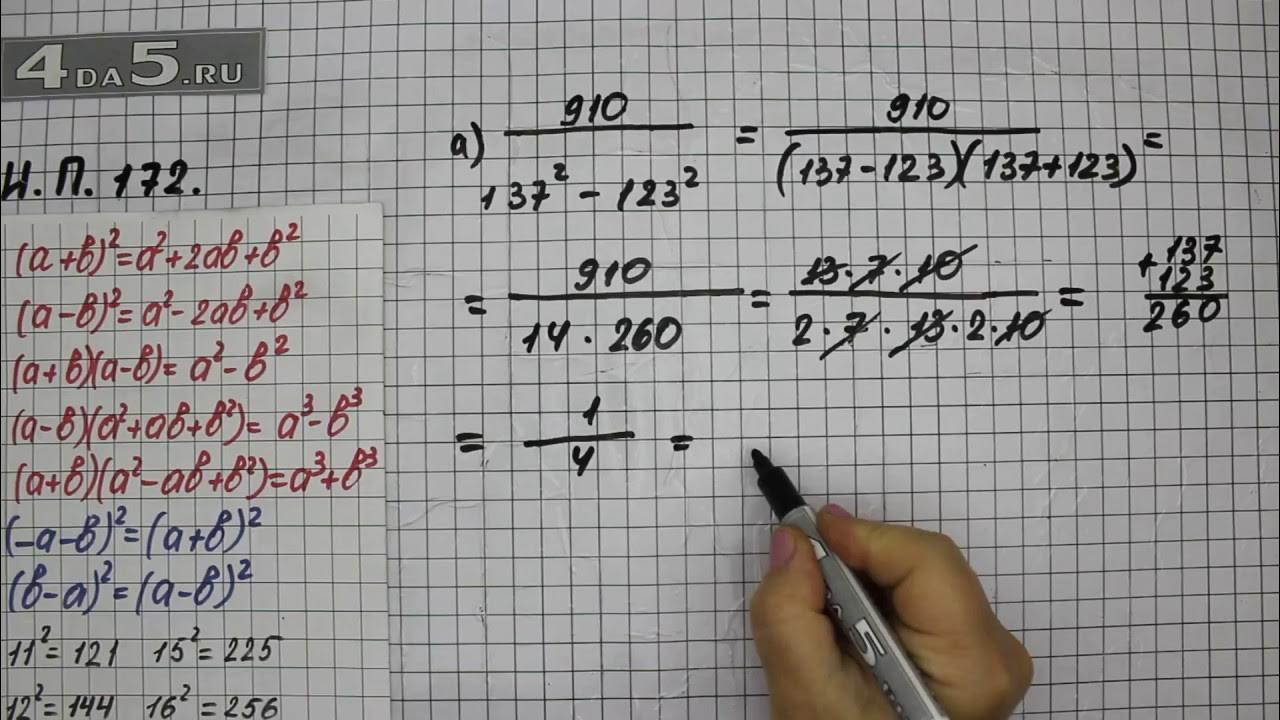 4DA5.RU
И.П. 172.
(a+b)²=a²+2ab+b²
(a-b)²=a²-2ab+b²
(a+b)(a-b)=a²-b²
(a-b)(a²+ab+b²)=a³-b³
(a+b)(a²-ab+b²)=a³+b³
(-a-b)²=(a+b)²
(b-a)²=(a-b)²
11²=121 15²=225
12²=144 16²=256
а) 910/(137²-123²) = 910/((137-123)(137+123)) =
= 910/(14·260) = (13·7·10)/(2·7·13·2·10) =
+137
123
260
= 1/4 =
5